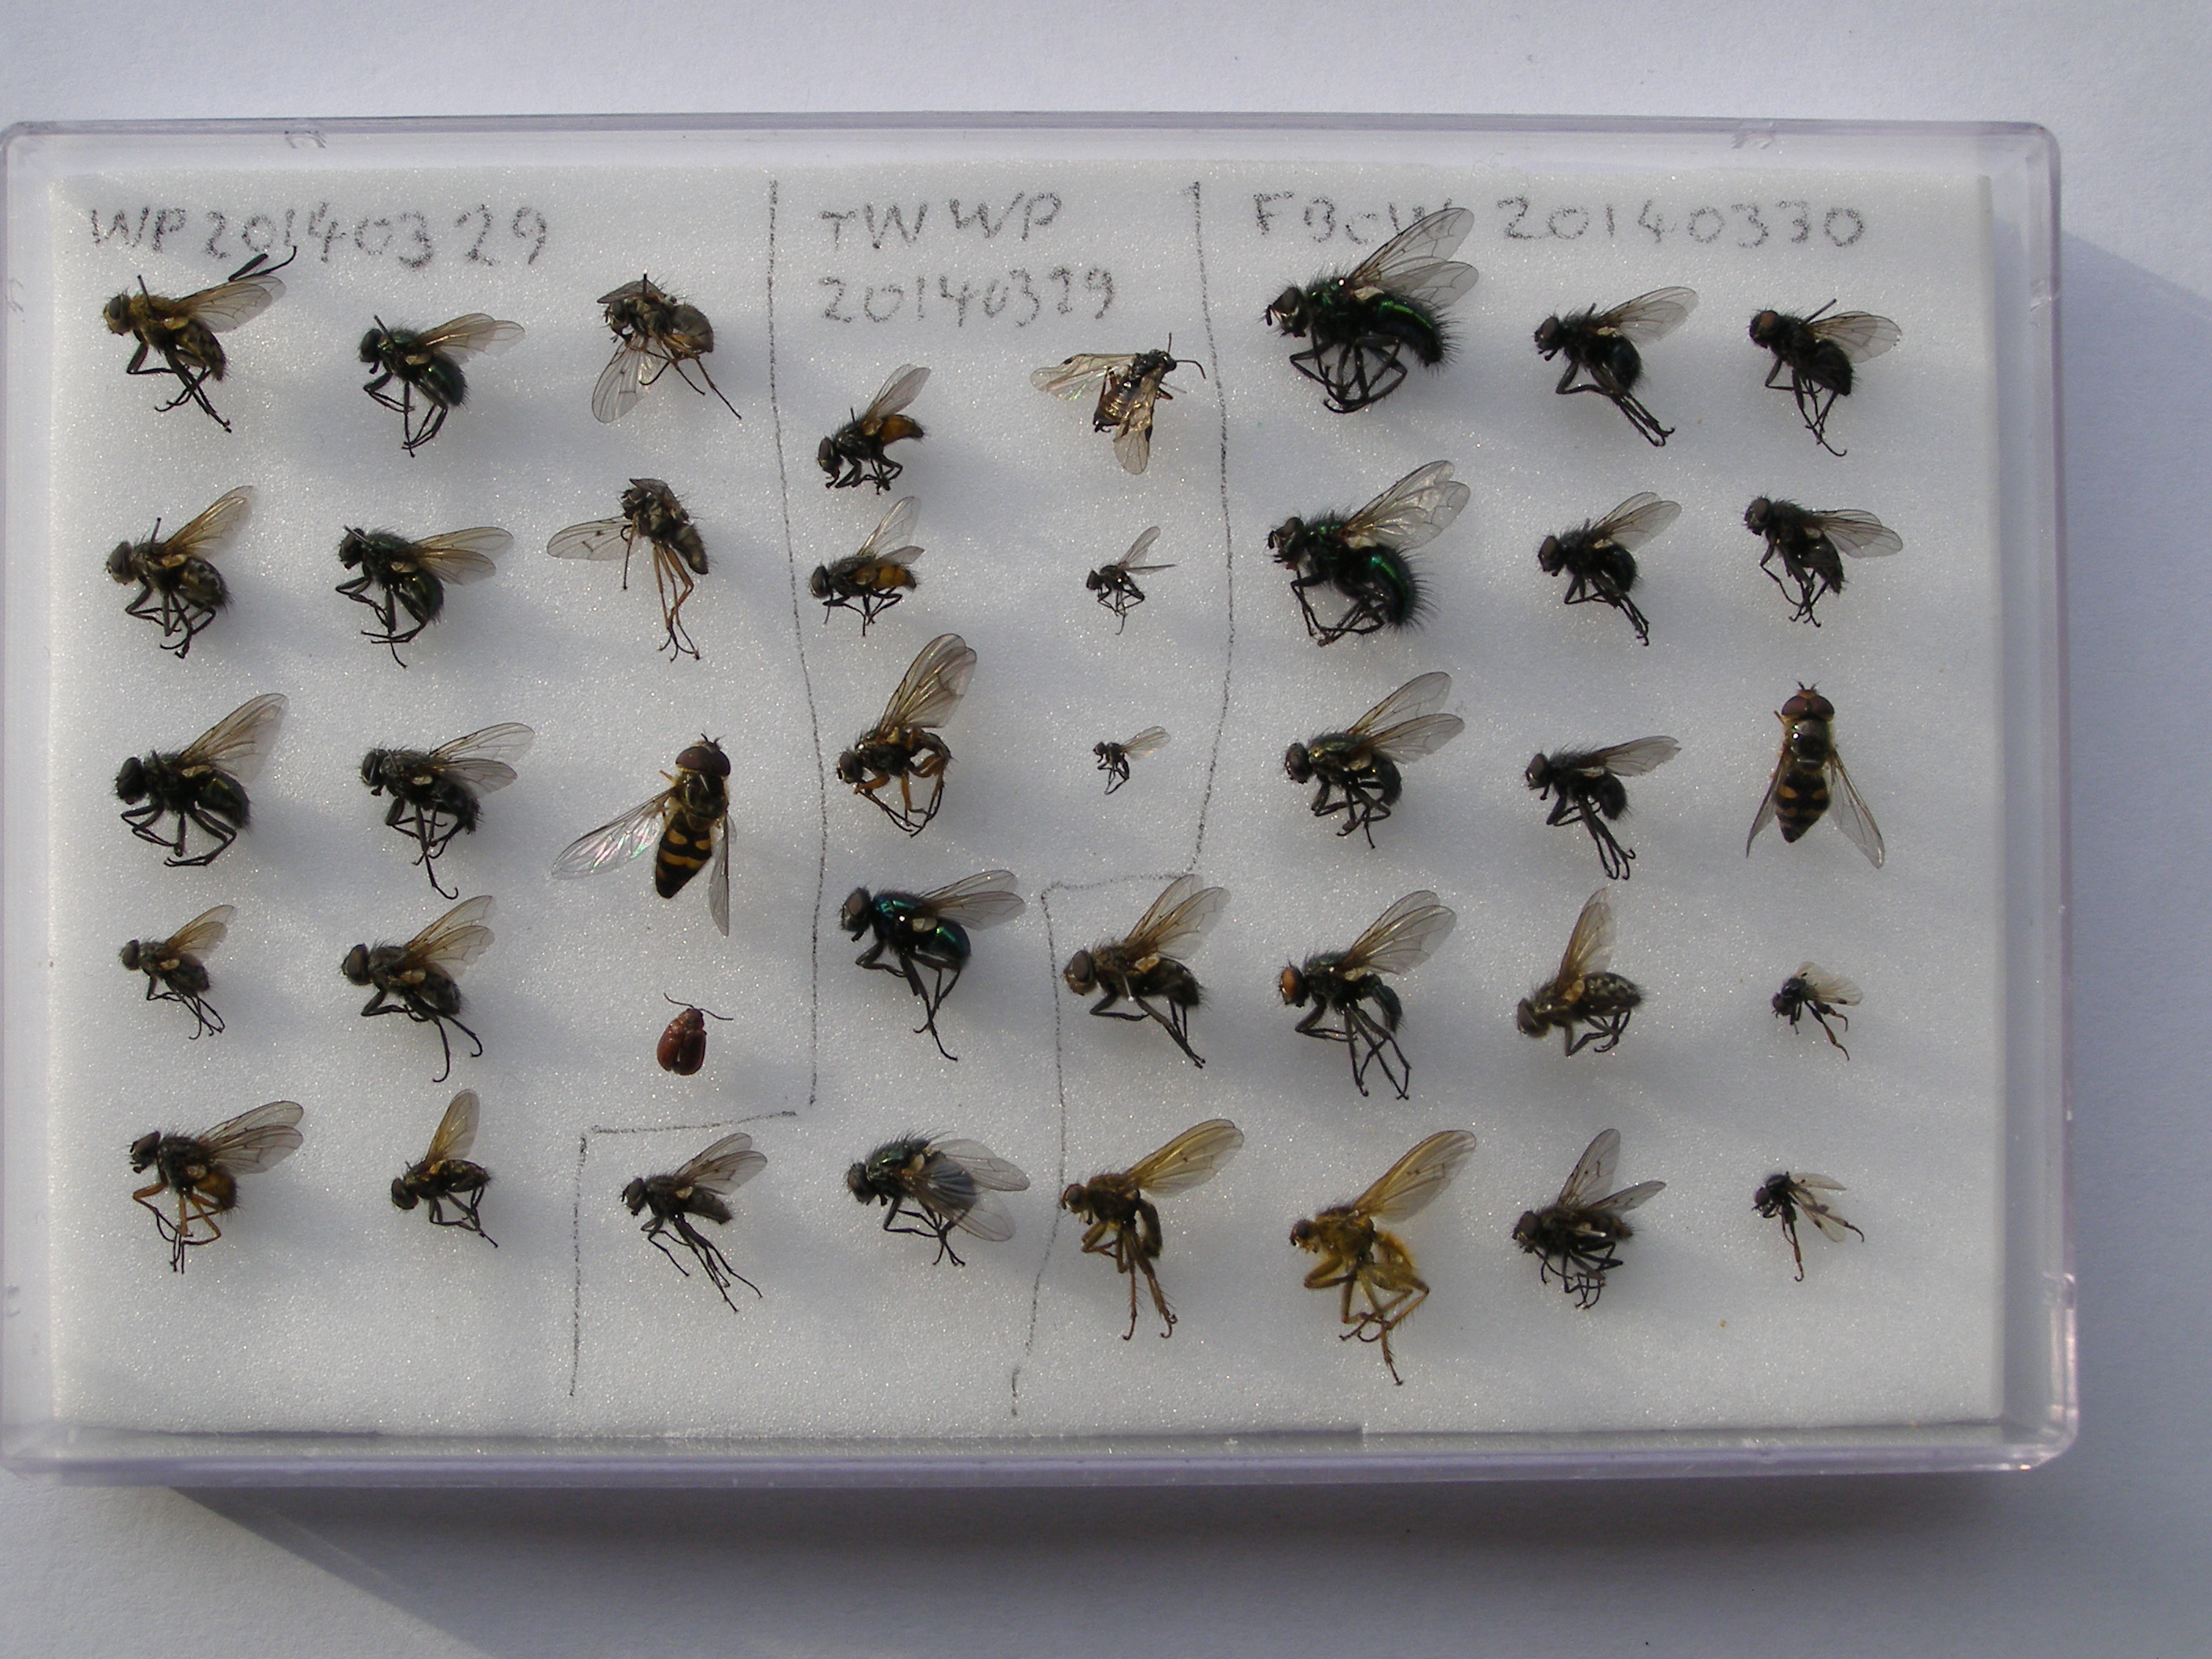 WP 20140329
TW WP
20140329
FBcW 20140330